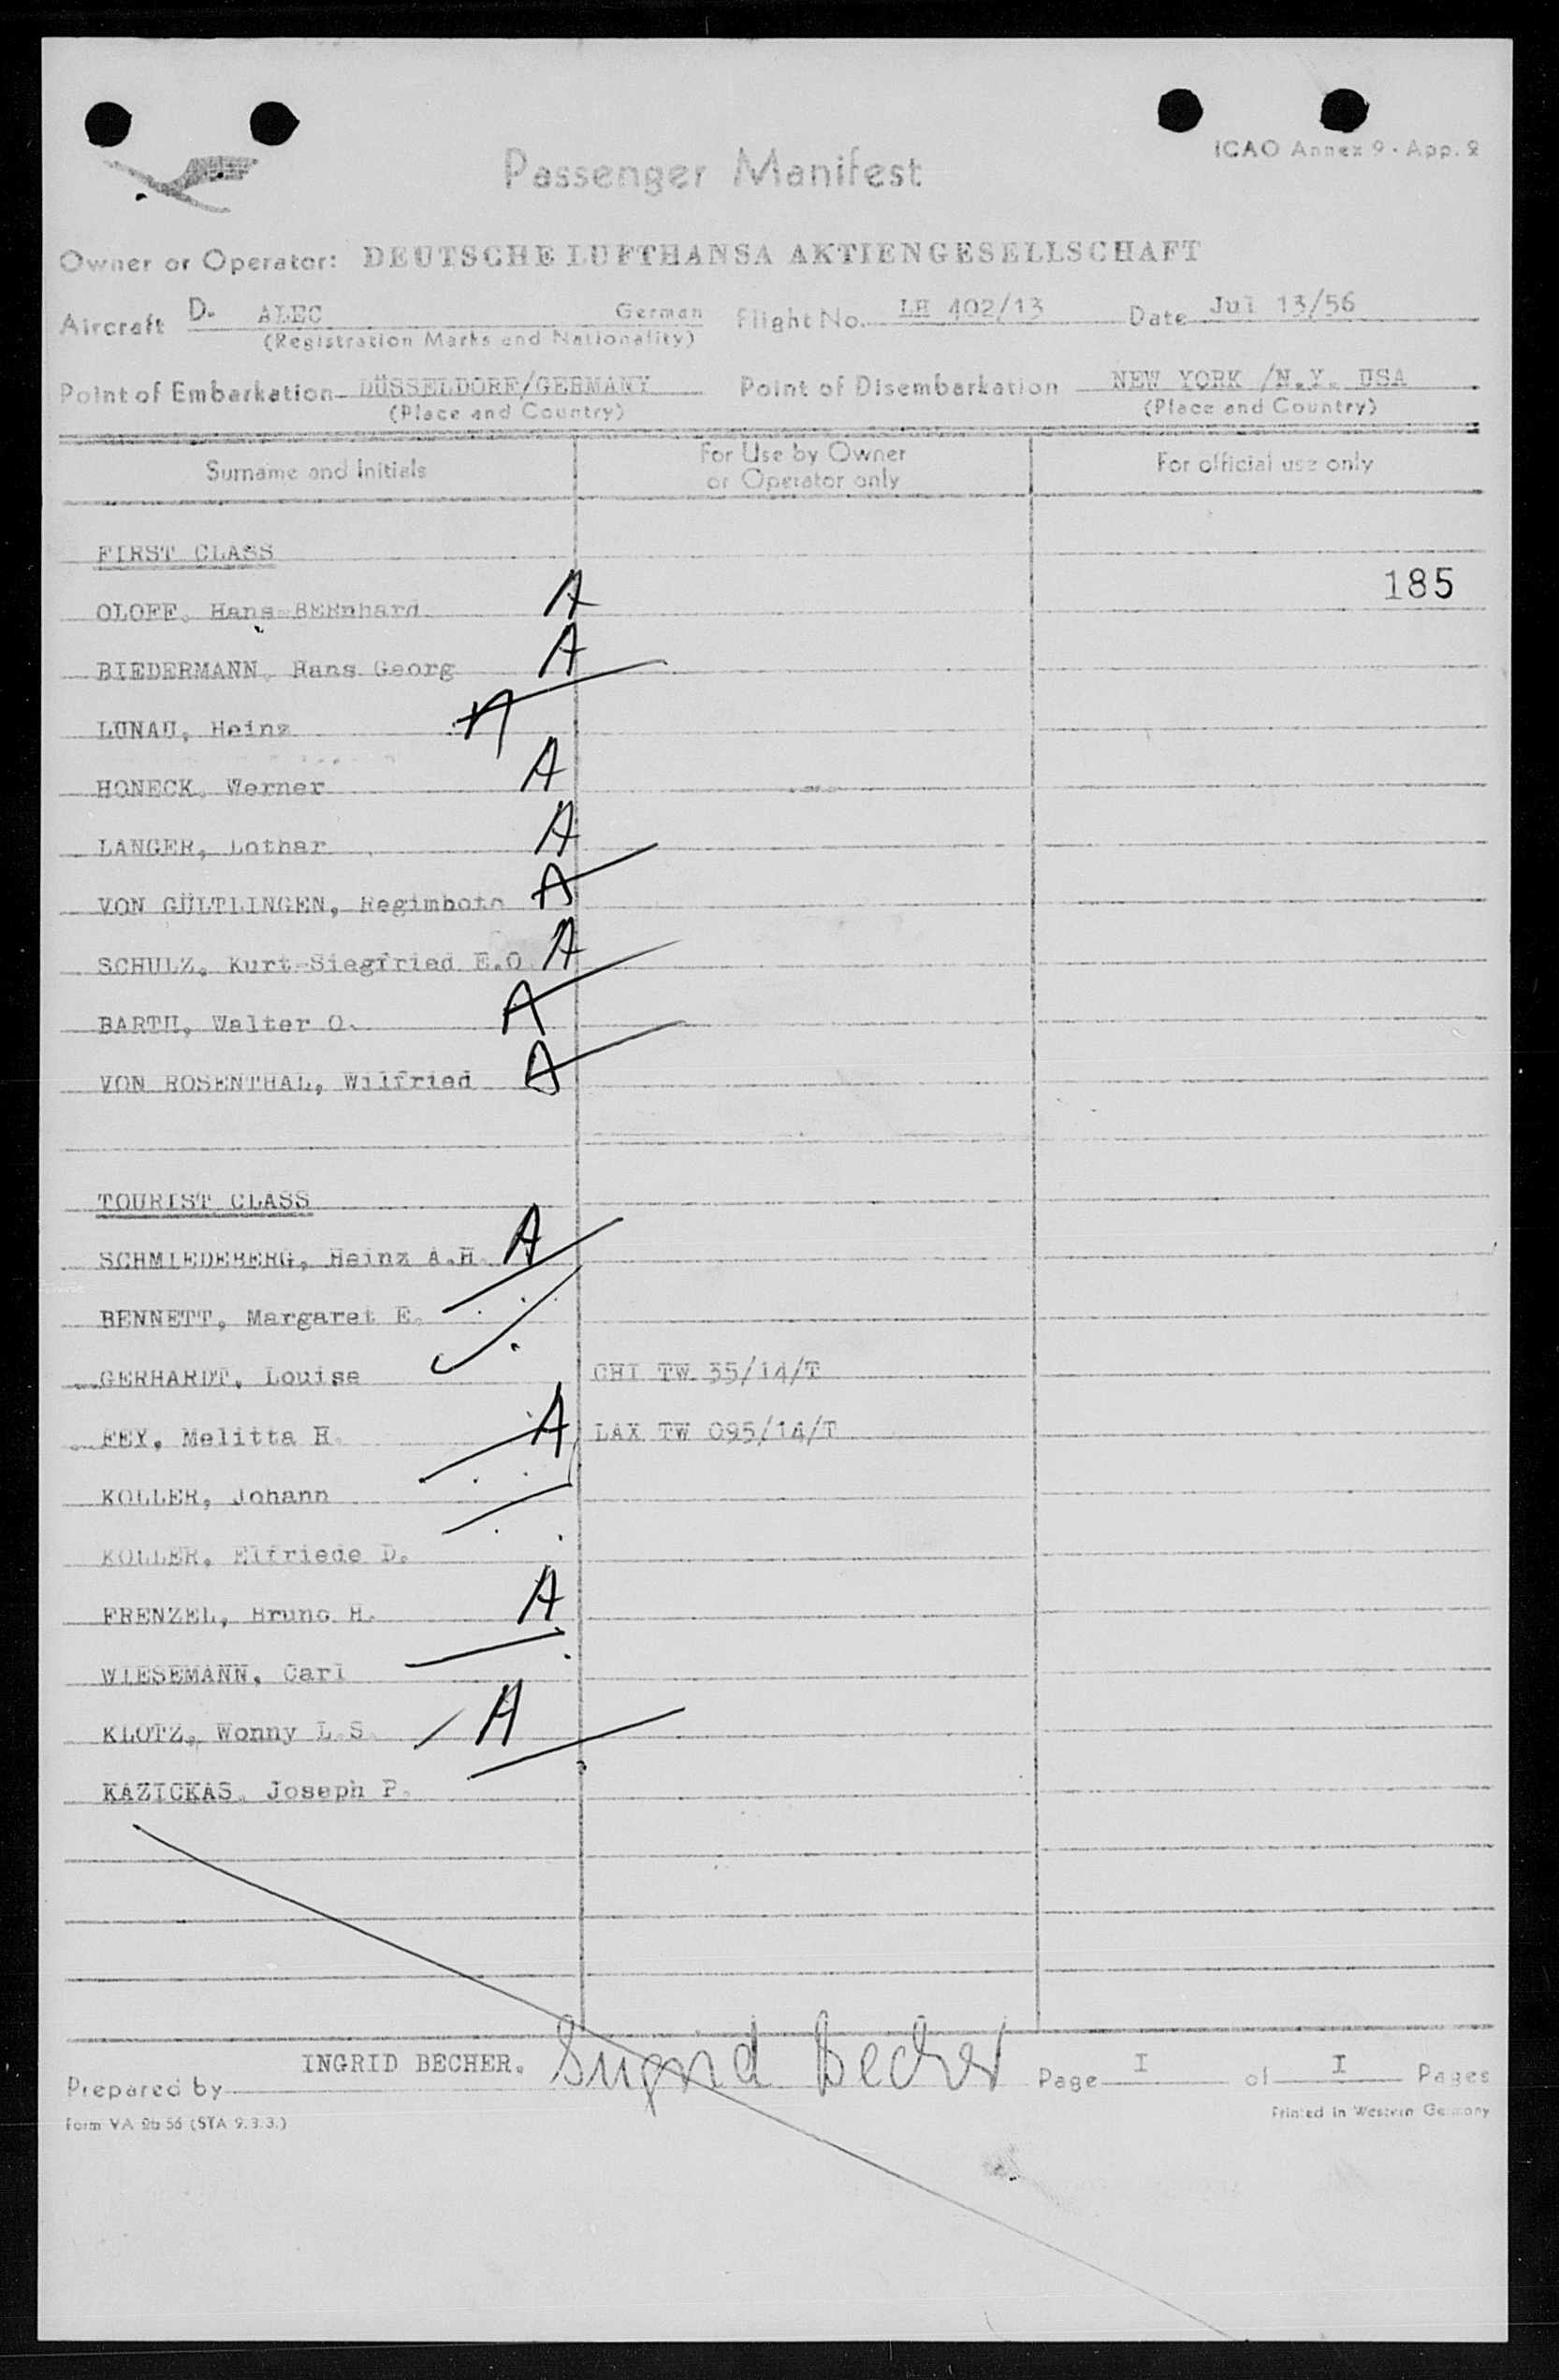 ICAO Annex 9 · App. 2
Passenger Manifest
Owner or Operator: DEUTSCHE LUFTHANSA AKTIENGESELLSCHAFT
Aircraft D- ALEC German Flight No. LH 402/13 Date Jul 13/56
(Registration Marks and Nationality)
Point of Embarkation DÜSSELDORF/GERMANY Point of Disembarkation NEW YORK /N.Y. USA
(Place and Country) (Place and Country)
Surname and Initials For Use by Owner or Operator only For official use only
FIRST CLASS
185
OLOFF, Hans-BERnhard A
BIEDERMANN, Hans Georg A
LUNAU, Heinz A
HONECK, Werner A
LANGER, Lothar A
VON GÜLTLINGEN, Regimboto A
SCHULZ, Kurt-Siegfried E.O A
BARTH, Walter O. A
VON ROSENTHAL, Wilfried A
TOURIST CLASS
SCHMIEDEBERG, Heinz A.H. A
BENNETT, Margaret E.
GERHARDT, Louise CHI TW 35/14/T
FEY, Melitta H. A LAX TW 095/14/T
KOLLER, Johann
KOLLER, Elfriede D.
FRENZEL, Bruno H. A
WIESEMANN, Carl
KLOTZ, Wonny L.S. A
KAZICKAS, Joseph P.
Prepared by INGRID BECHER. Ingrid Becher Page I of I Pages
Form VA 2b 56 (STA 9.3.3.) Printed in Western Germany